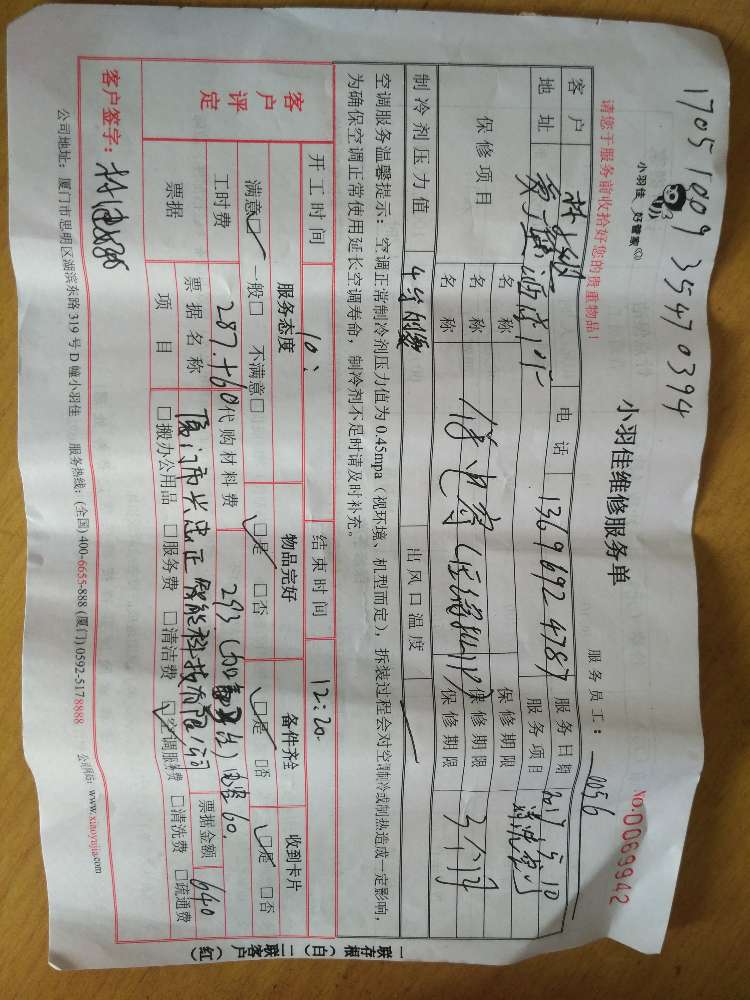 1705100935470394
小羽佳 好管家
小羽佳维修服务单
请您于服务前收拾好您的贵重物品!
服务员工: 0056
No.0069942
客户 电话 13696924787 服务日期 2017 5 10
地址 服务项目
保修项目 名称 保修期限
名称 保修期限 3个月
名称 保修期限
制冷剂压力值 出风口温度
空调服务温馨提示:空调正常制冷剂压力值为0.45mpa(视环境、机型而定),拆装过程会对空调制冷或制热造成一定影响,
为确保空调正常使用延长空调寿命,制冷剂不足时请及时补充。
客户评定 开工时间 10: 结束时间 12:20
服务态度 物品完好 备件齐全 收到卡片
满意□ 一般□ 不满意□ □是 □否 □是 □否 □是 □否
工时费 287.+60 代购材料费 293
票据 票据名称 厦门市 智能科技有限公司 票据金额 640
项目 □搬办公用品 □服务费 □清洁费 □空调服务费 □清洗费 □疏通费
客户签字:
公司地址:厦门市思明区湖滨东路319号D幢小羽佳 服务热线:(全国)400-6655-888 (厦门)0592-5178888 公司网站:www.xiaoyujia.com
一联存根(白) 二联客户(红)